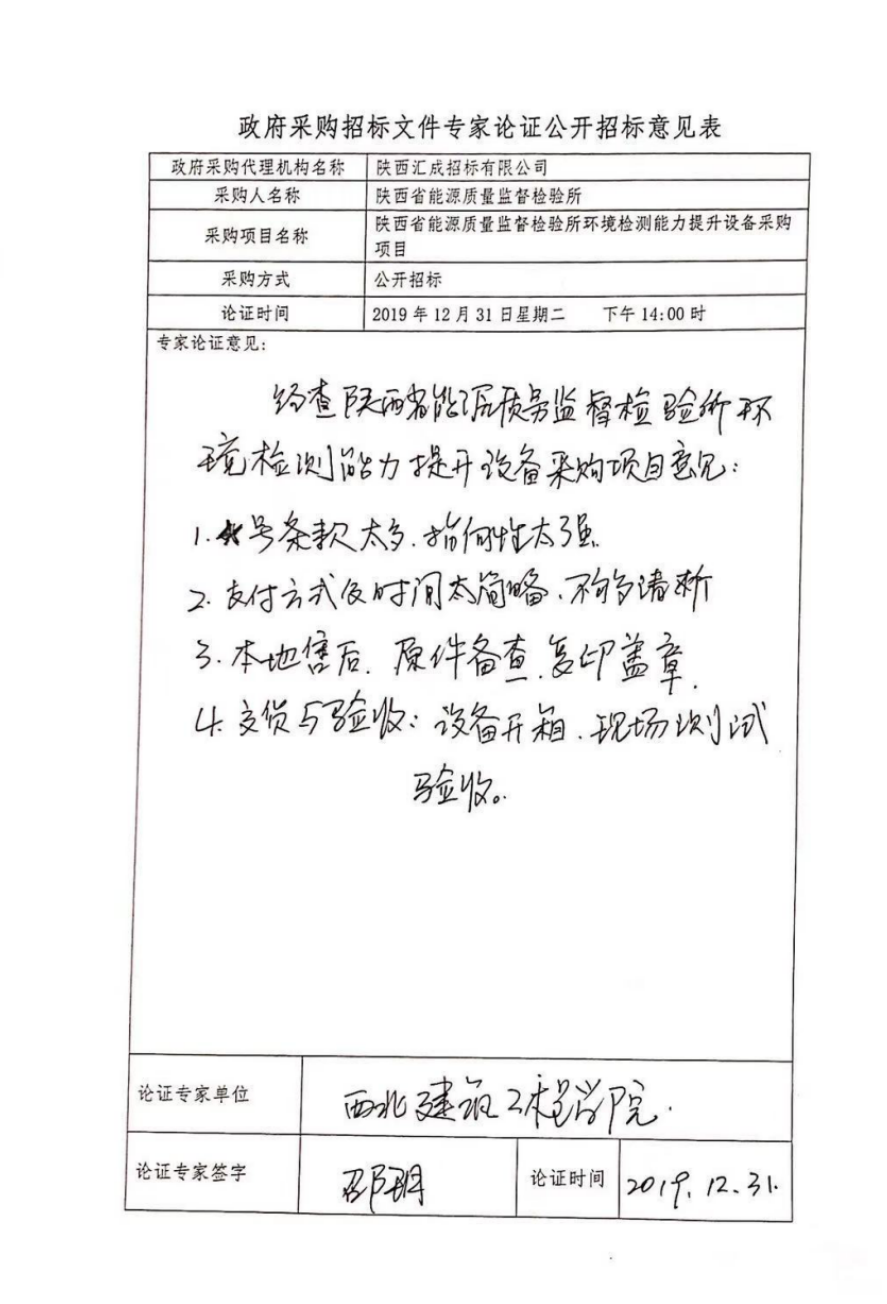 政府采购招标文件专家论证公开招标意见表
政府采购代理机构名称 陕西汇成招标有限公司
采购人名称 陕西省能源质量监督检验所
采购项目名称 陕西省能源质量监督检验所环境检测能力提升设备采购
项目
采购方式 公开招标
论证时间 2019 年 12 月 31 日星期二 下午 14:00 时
专家论证意见：
经查陕西省能源质量监督检验所环
境检测能力提升设备采购项目意见：
1. 号条款太多．指向性太强
2. 支付方式及时间太简略、不够清晰
3. 本地售后．原件备查．复印盖章．
4. 交货与验收：设备开箱．现场测试
验收。
论证专家单位 西北建筑工程学院．
论证专家签字 邵 论证时间 2019. 12. 31.